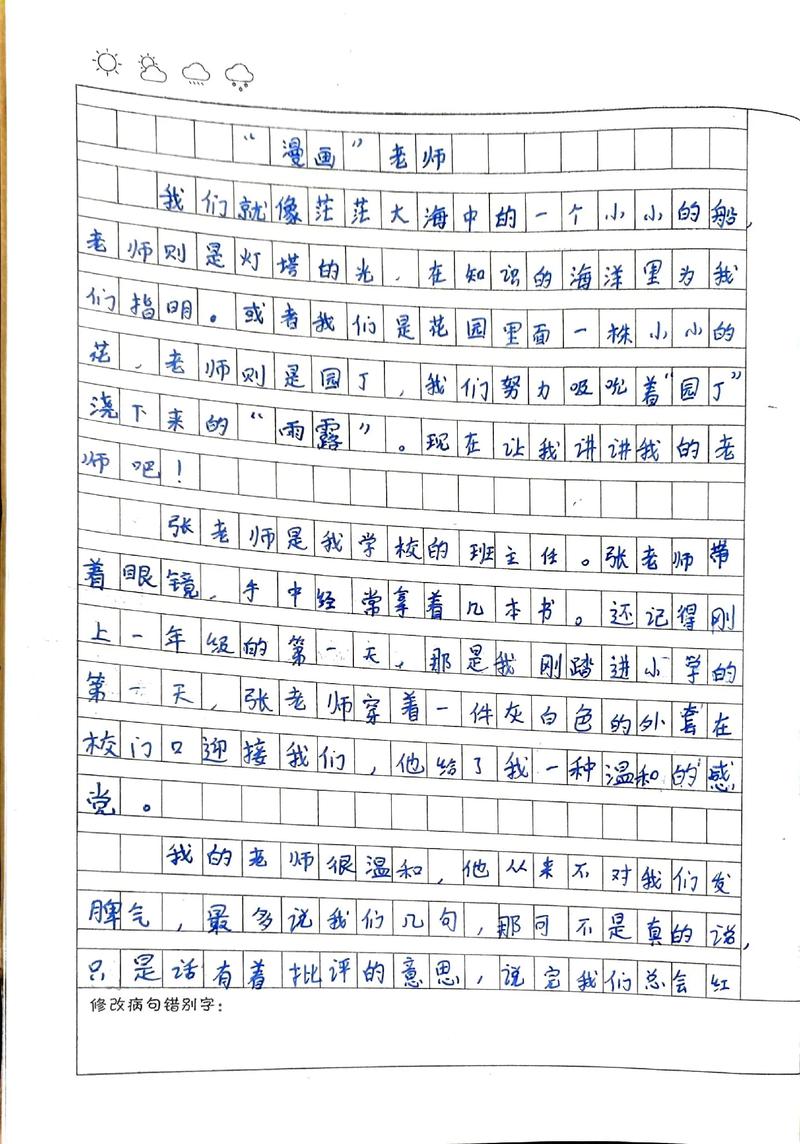 “漫画”老师
我们就像茫茫大海中的一个小小的船，
老师则是灯塔的光，在知识的海洋里为我
们指明。或者我们是花园里面一株小小的
花，老师则是园丁，我们努力吸吮着“园丁”
浇下来的“雨露”。现在让我讲讲我的老
师吧！
张老师是我学校的班主任。张老师带
着眼镜，手中经常拿着几本书。还记得刚
上一年级的第一天，那是我刚踏进小学的
第一天，张老师穿着一件灰白色的外套在
校门口迎接我们，他给了我一种温和的感
觉。
我的老师很温和，他从来不对我们发
脾气，最多说我们几句，那可不是真的说，
只是话有着批评的意思，说完我们总会红
修改病句错别字：